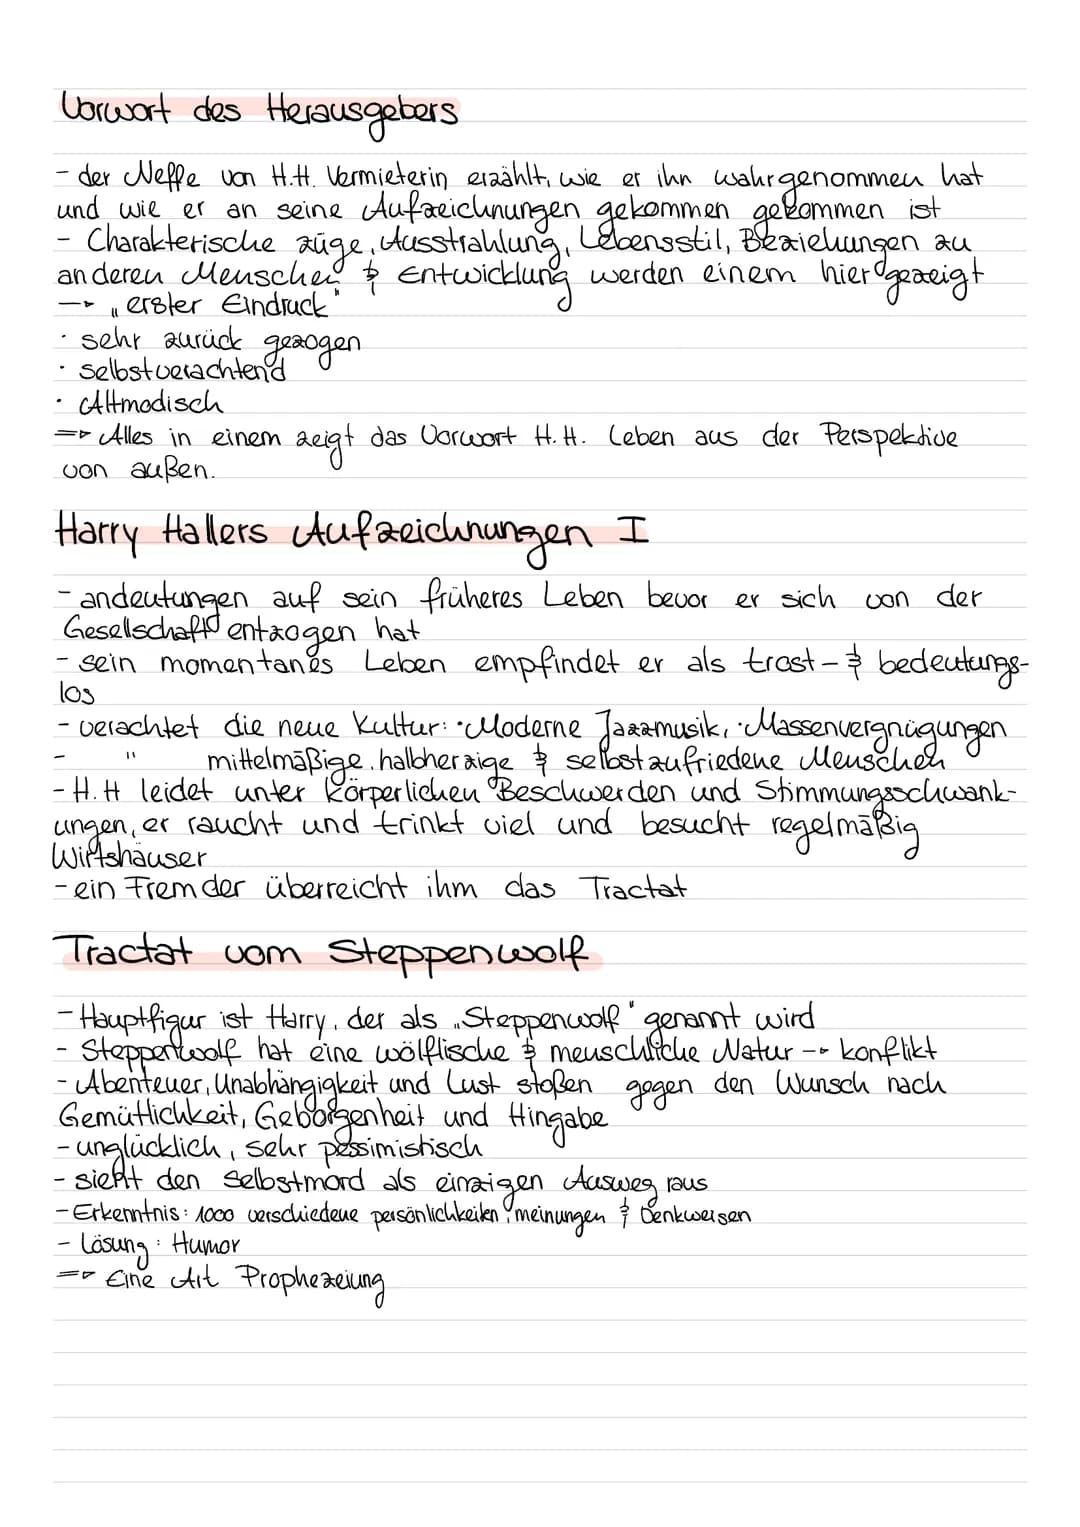 Vorwort des Herausgebers
- der Neffe von H.H. Vermieterin erzählt, wie er ihn wahrgenommen hat
und wie er an seine Aufzeichnungen gekommen gekommen ist
- Charakterische züge, Ausstrahlung, Lebensstil, Beziehungen zu
anderen Menschen & Entwicklung werden einem hier gezeigt
→ „erster Eindruck"
· sehr zurück gezogen
· selbstverachtend
· Altmodisch
⇒ Alles in einem zeigt das Vorwort H.H. Leben aus der Perspektive
von außen.
Harry Hallers Aufzeichnungen I
- andeutungen auf sein früheres Leben bevor er sich von der
Gesellschaft entzogen hat
- sein momentanes Leben empfindet er als trost- & bedeutungs-
los
- verachtet die neue Kultur: ·Moderne Jazzmusik, ·Massenvergnügungen
- " mittelmäßige, halbherzige & selbstzufriedene Menschen
- H.H leidet unter körperlichen Beschwerden und Stimmungsschwank-
ungen, er raucht und trinkt viel und besucht regelmäßig
Wirtshäuser
- ein Fremder überreicht ihm das Tractat
Tractat vom Steppenwolf
- Hauptfigur ist Harry, der als „Steppenwolf" genannt wird
- Steppenwolf hat eine wölfische & menschliche Natur → konflikt
- Abenteuer, Unabhängigkeit und Lust stoßen gegen den Wunsch nach
Gemütlichkeit, Geborgenheit und Hingabe
- unglücklich, sehr pessimistisch
- sieht den Selbstmord als einzigen Ausweg raus
- Erkenntnis: 1000 verschiedene persönlichkeiten, meinungen & Denkweisen
- Lösung: Humor
⇒ Eine Art Prophezeiung